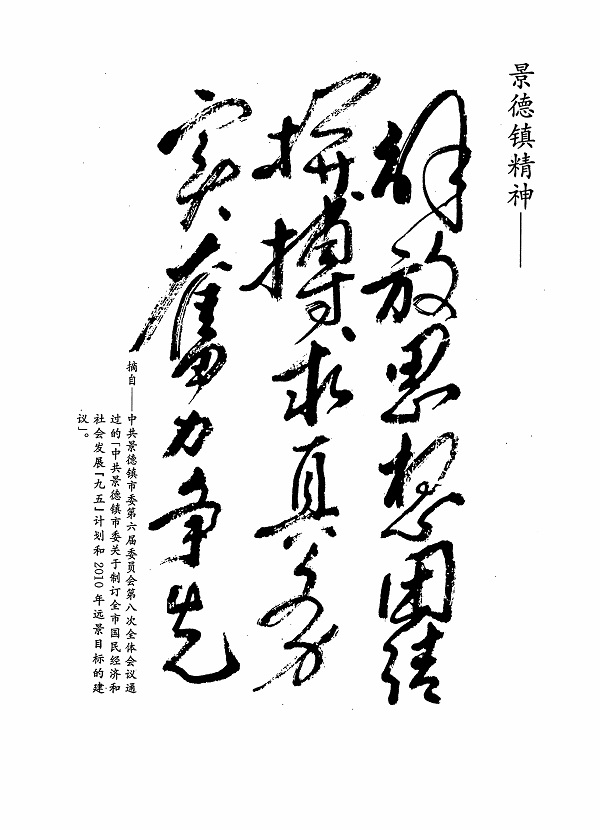 景德镇精神——
解放思想团结
拼搏求真务
实奋力争先
摘自——中共景德镇市委第六届委员会第八次全体会议通
过的「中共景德镇市委关于制订全市国民经济和
社会发展「九五」计划和2010年远景目标的建
议」。